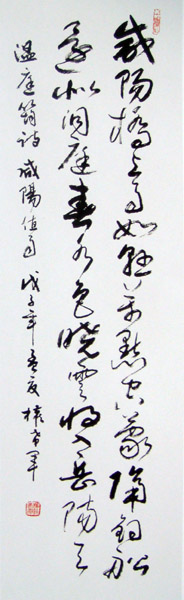 咸陽橋上雨如懸萬點空蒙隔釣船
還似洞庭春水色曉雲將入岳陽天
溫庭筠詩咸陽值雨戊子年孟夏